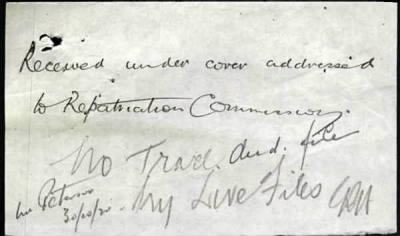 Received under cover addressed
to Repatriation Commission.
No Trace. Aud. file
30/10/20. My Live Files